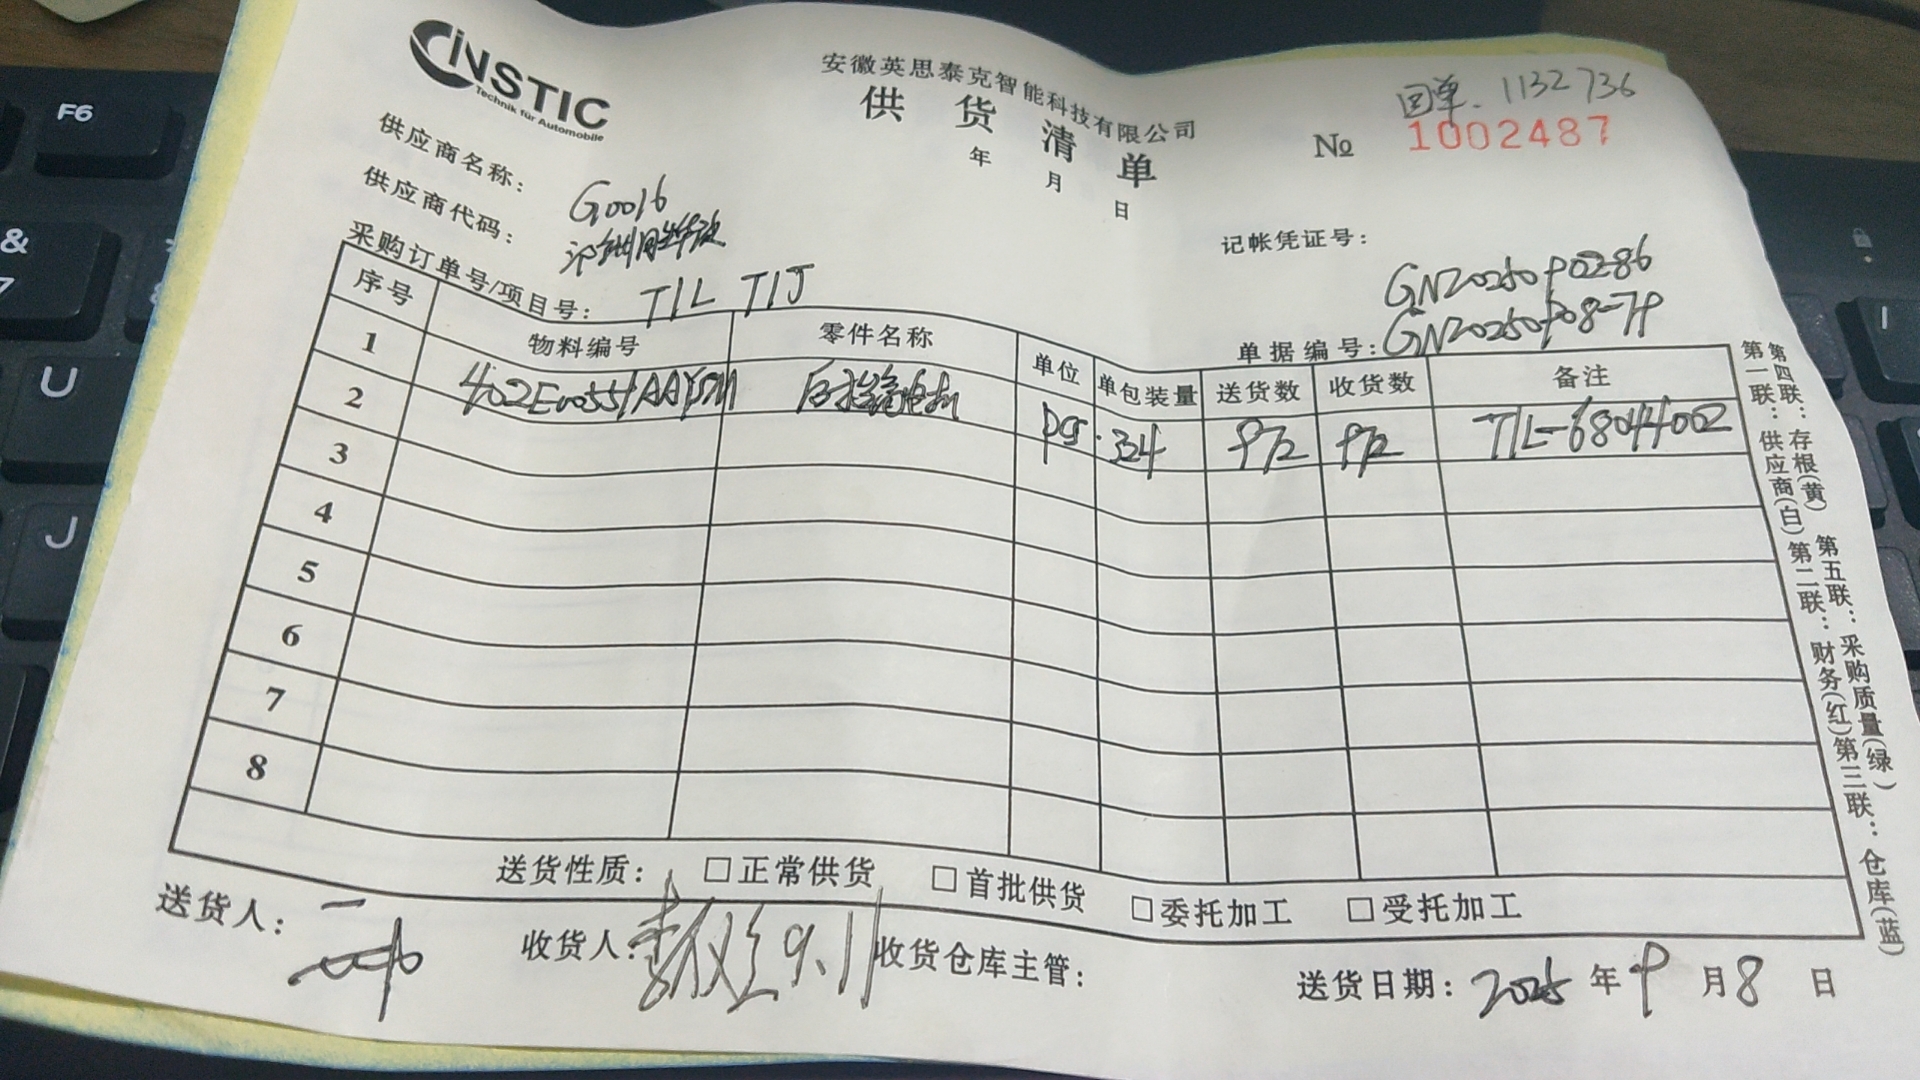 INSTIC
Technik für Automobile
安徽英思泰克智能科技有限公司
供货清单
年 月 日
回单. 1132736
№ 1002487
供应商名称: G0016
供应商代码:
采购订单号/项目号: T1L T1J
记帐凭证号:
GN2025090286
单据编号: GN20250908-79
序号 物料编号 零件名称 单位 单包装量 送货数 收货数 备注
1 pcs. 324 972 972 T1L-68044002
2
3
4
5
6
7
8
送货性质: □正常供货 □首批供货 □委托加工 □受托加工
送货人:
收货人: 9.11
收货仓库主管:
送货日期: 2025年9月8日
第一联:供应商(白)第二联:财务(红)第三联:仓库(蓝)
第四联:存根(黄) 第五联:采购质量(绿)
F6
&
7
U
J